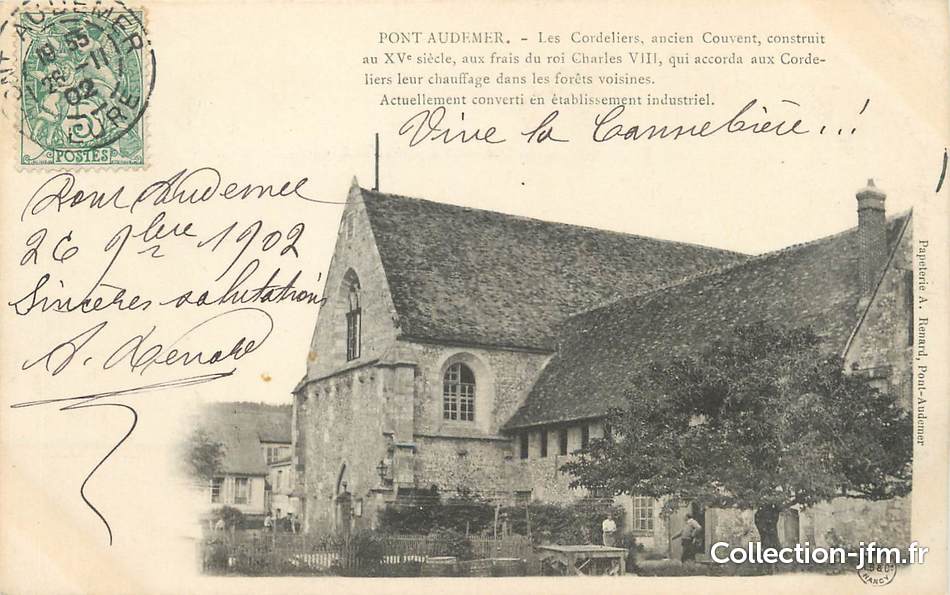 PONT AUDEMER. - Les Cordeliers, ancien Couvent, construit
au XVᵉ siècle, aux frais du roi Charles VIII, qui accorda aux Corde-
liers leur chauffage dans les forêts voisines.
Actuellement converti en établissement industriel.
Vive la Cannebière...!
Pont Audemer
26 9bre 1902
Sincères salutations
A. Renard
PONT AUDEMER
18 55
26 11
02
EURE
5
POSTES
Papeterie A. Renard, Pont-Audemer
Collection-jfm.fr
NANCY